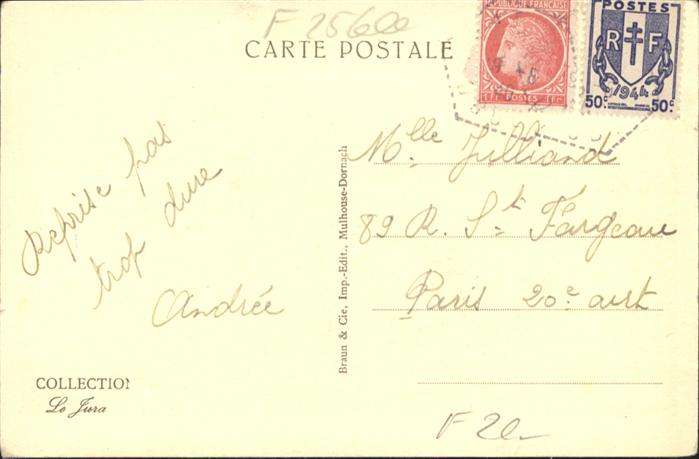 F 25600
CARTE POSTALE
RÉPUBLIQUE FRANÇAISE
1F POSTES 1F
POSTES
RF
1944
50c 50c
Reprise pas
trop dure
Andrée
COLLECTION
Le Jura
Braun & Cie, Imp.-Edit., Mulhouse-Dornach
Mlle Julliand
89 R. St Fargeau
Paris 20e arrt
F 20